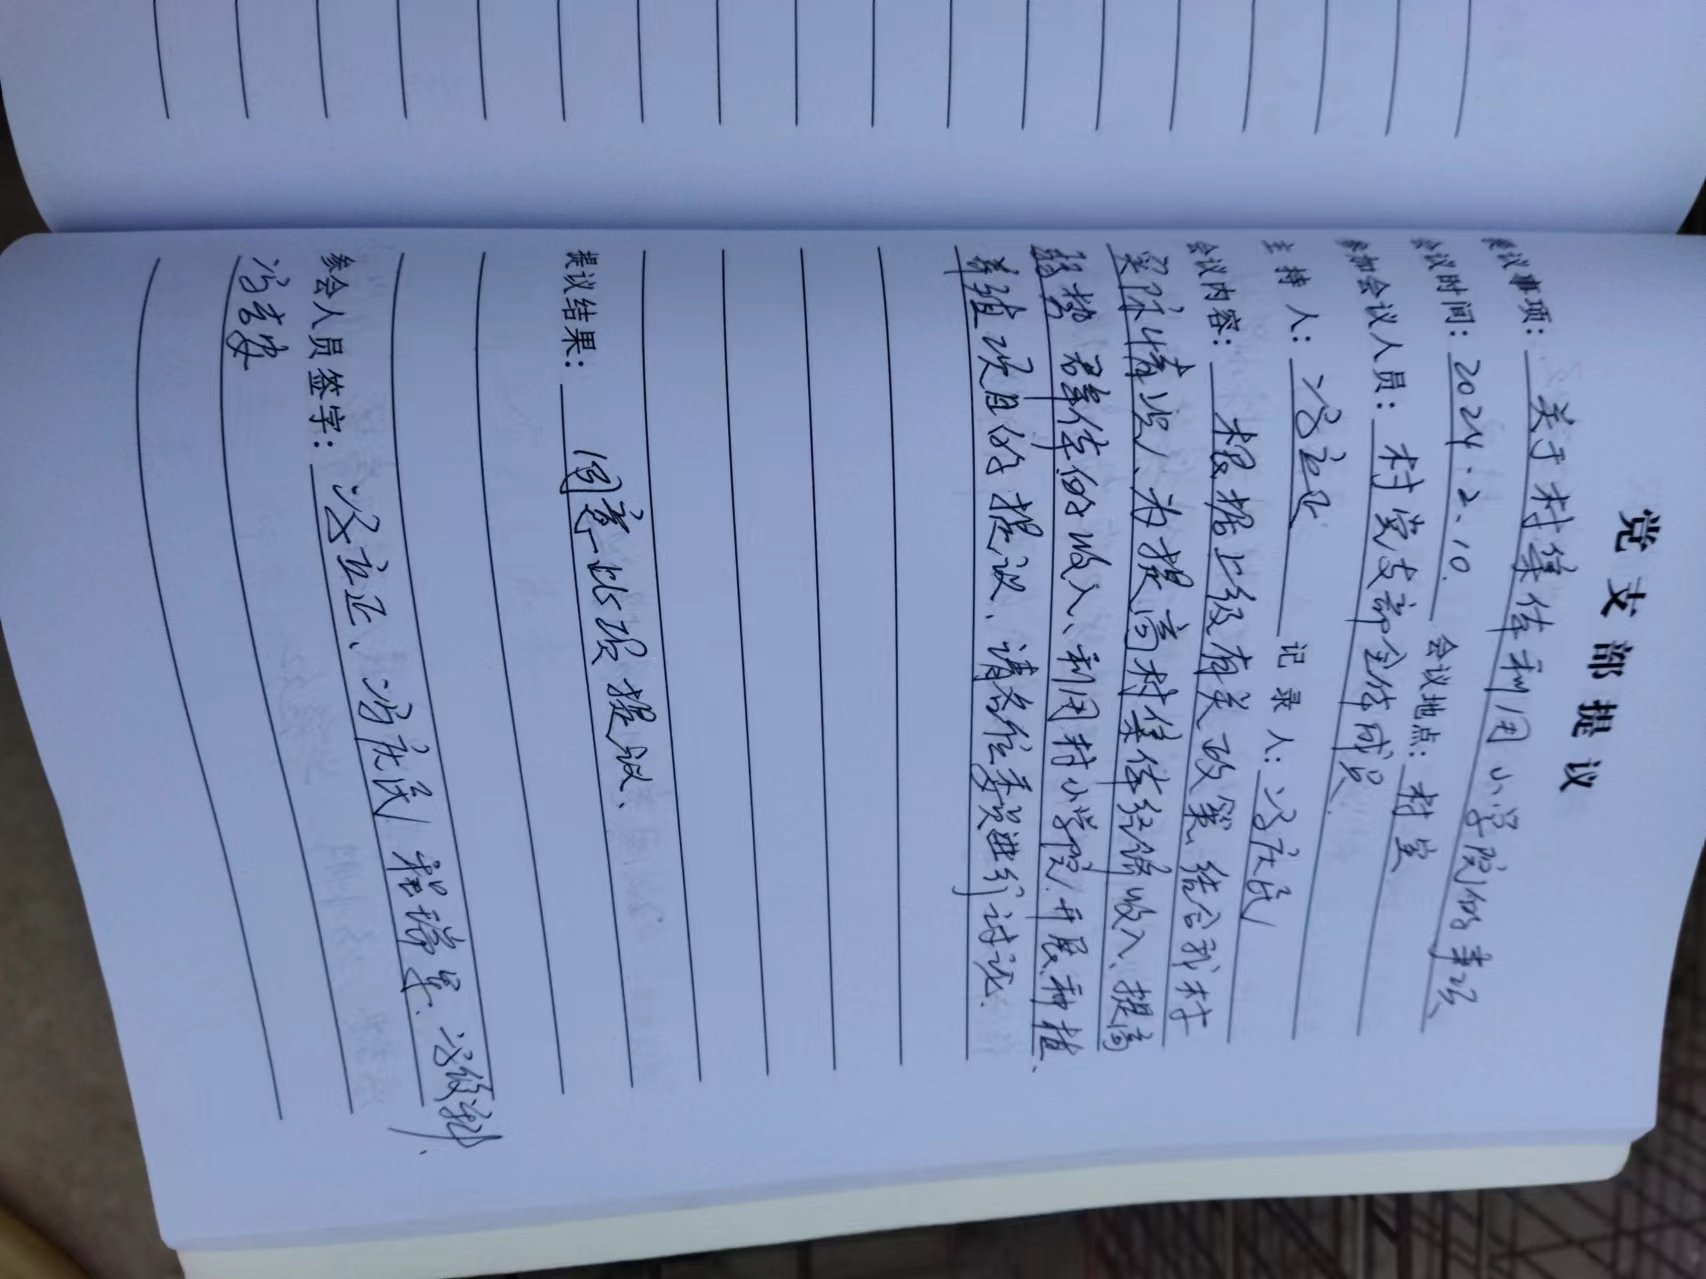 党支部提议
提议事项：关于村集体利用小学院的事项
会议时间：2024.2.10. 会议地点：村室
参加会议人员：村党支部全体成员.
主 持 人：冯立正 记 录 人：冯庆民
会议内容：根据上级有关政策、结合我村
实际情况、为提高村集体经济收入、提高
群体的收入、利用村小学院、开展种植、
养殖项目的提议、请各位委员进行讨论.
提议结果：同意此项提议、
参会人员签字：冯立正、冯庆民 程瑞星、冯
冯